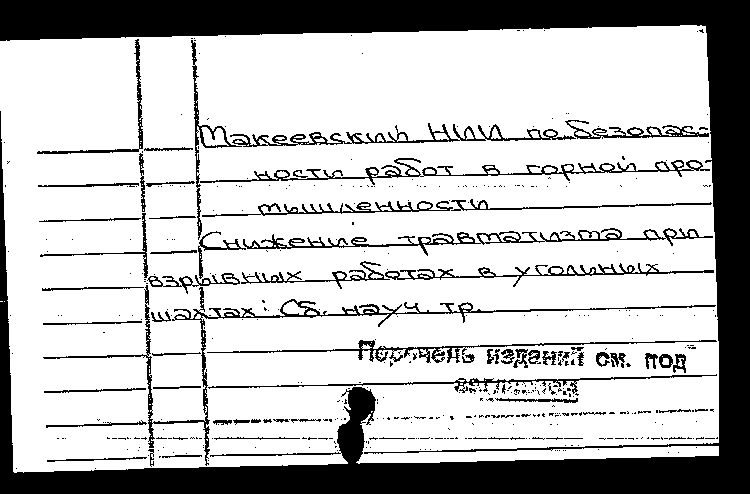 Макеевский НИИ по безопас-
ности работ в горной про-
мышленности
Снижение травматизма при
взрывных работах в угольных
шахтах: Сб. науч. тр.
Перечень изданий см. под
заглавием